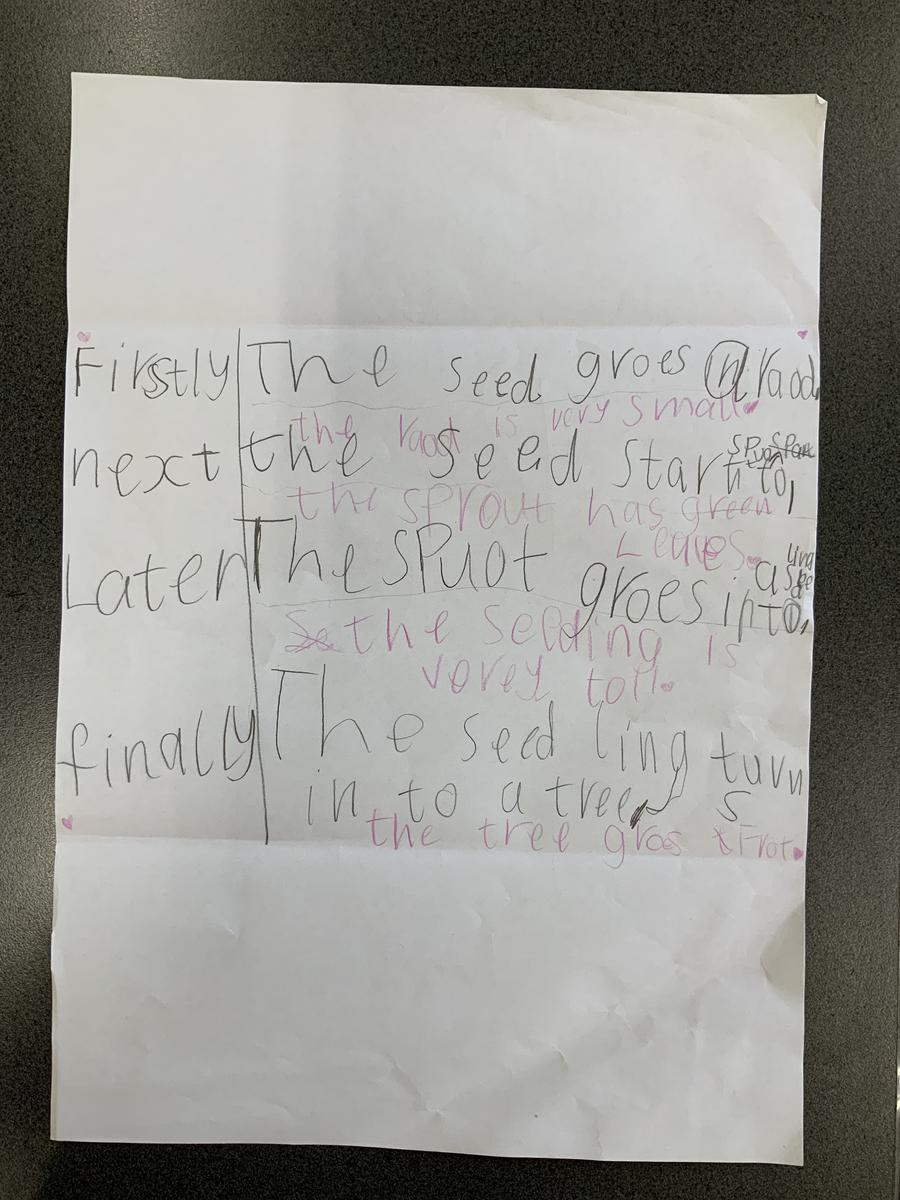 Firstly The seed groes n raod.
the raost is very small.
next the seed start to,
the sprout has green
Leaves.
Later The sPuot groes into, a
the seedling is
vorey toll.
finally The seed ling turn
in to a tree, s
the tree gros Frot.